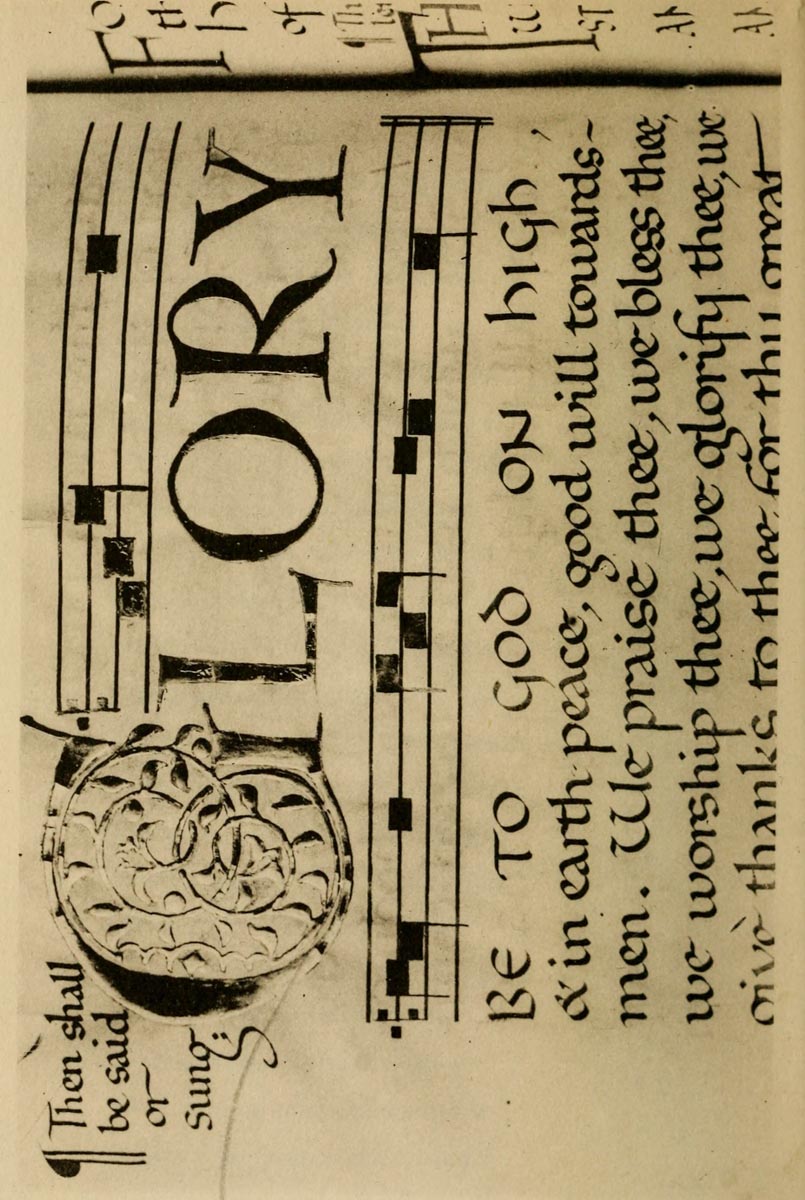 ¶ Then shall
be said
or
sung:
GLORY
BE TO GOD ON HIGH,
& in earth peace, good will towards-
men. We praise thee, we bless thee,
we worship thee, we glorify thee, we
give thanks to thee for thy great